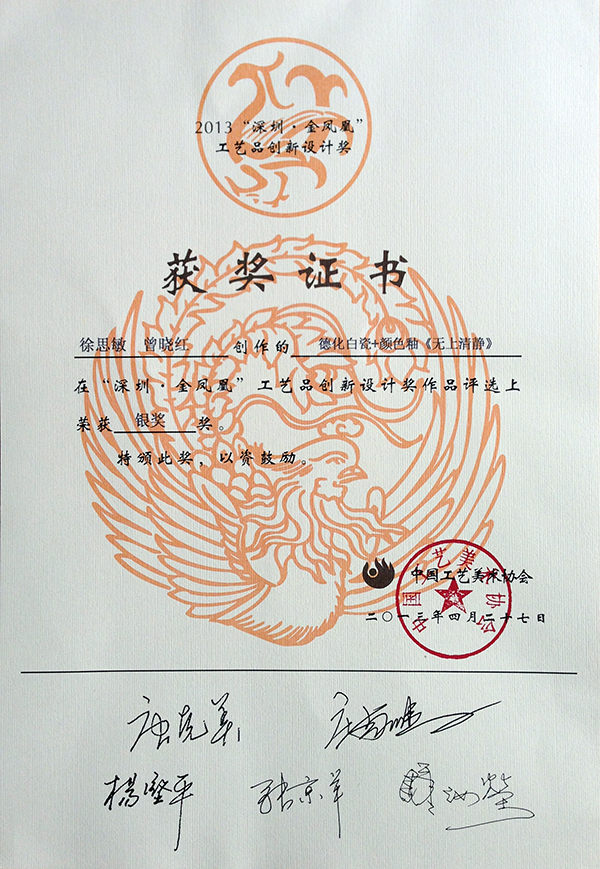 2013“深圳·金凤凰”
工艺品创新设计奖
获奖证书
徐思敏 曾晓红 创作的 德化白瓷+颜色釉《无上清静》
在“深圳·金凤凰”工艺品创新设计奖作品评选上
荣获 银奖 奖。
特颁此奖，以资鼓励。
中国工艺美术协会
二〇一三年四月二十七日
中国工艺美术协会
唐克美
杨坚平 张京羊